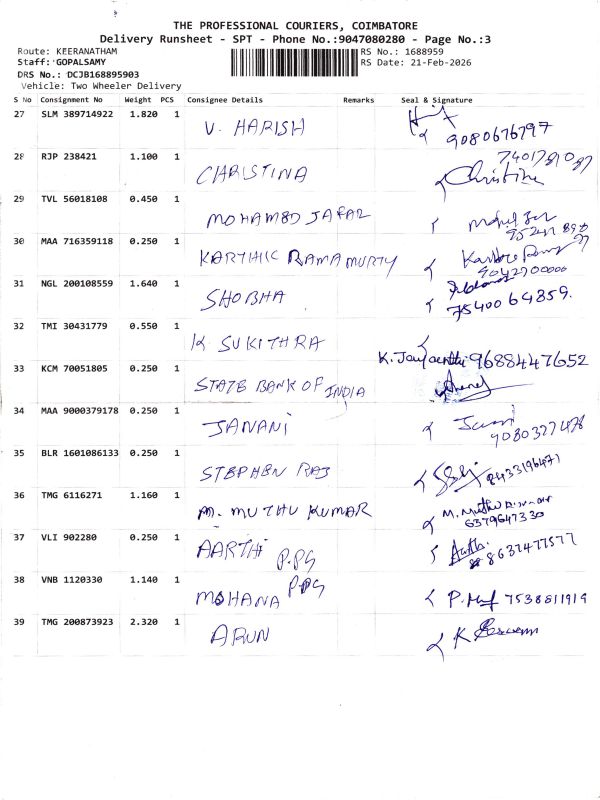 THE PROFESSIONAL COURIERS, COIMBATORE
Delivery Runsheet - SPT - Phone No.:9047080280 - Page No.:3
Route: KEERANATHAM RS No.: 1688959
Staff: GOPALSAMY RS Date: 21-Feb-2026
DRS No.: DCJB168895903
Vehicle: Two Wheeler Delivery
S No Consignment No Weight PCS Consignee Details Remarks Seal & Signature
27 SLM 389714922 1.820 1 V. HARISH
9080676797
28 RJP 238421 1.100 1 CHRISTINA
Christina
29 TVL 56018108 0.450 1 MOHAMED JAFAR
30 MAA 716359118 0.250 1 KARTHIC RAMAMURTY
31 NGL 200108559 1.640 1 SHOBHA
7540064859.
32 TMI 30431779 0.550 1 K SUKITHRA
K. Jayanthi 9688447652
33 KCM 70051805 0.250 1 STATE BANK OF INDIA
34 MAA 9000379178 0.250 1 JANANI
9080327478
35 BLR 1601086133 0.250 1 STEPHEN RAJ
8433196471
36 TMG 6116271 1.160 1 M. MUTHU KUMAR
M. Muthu
6379647330
37 VLI 902280 0.250 1 AARTHI P.PG
8637477577
38 VNB 1120330 1.140 1 MOHANA PPG
7538811919
39 TMG 200873923 2.320 1 ARUN
K